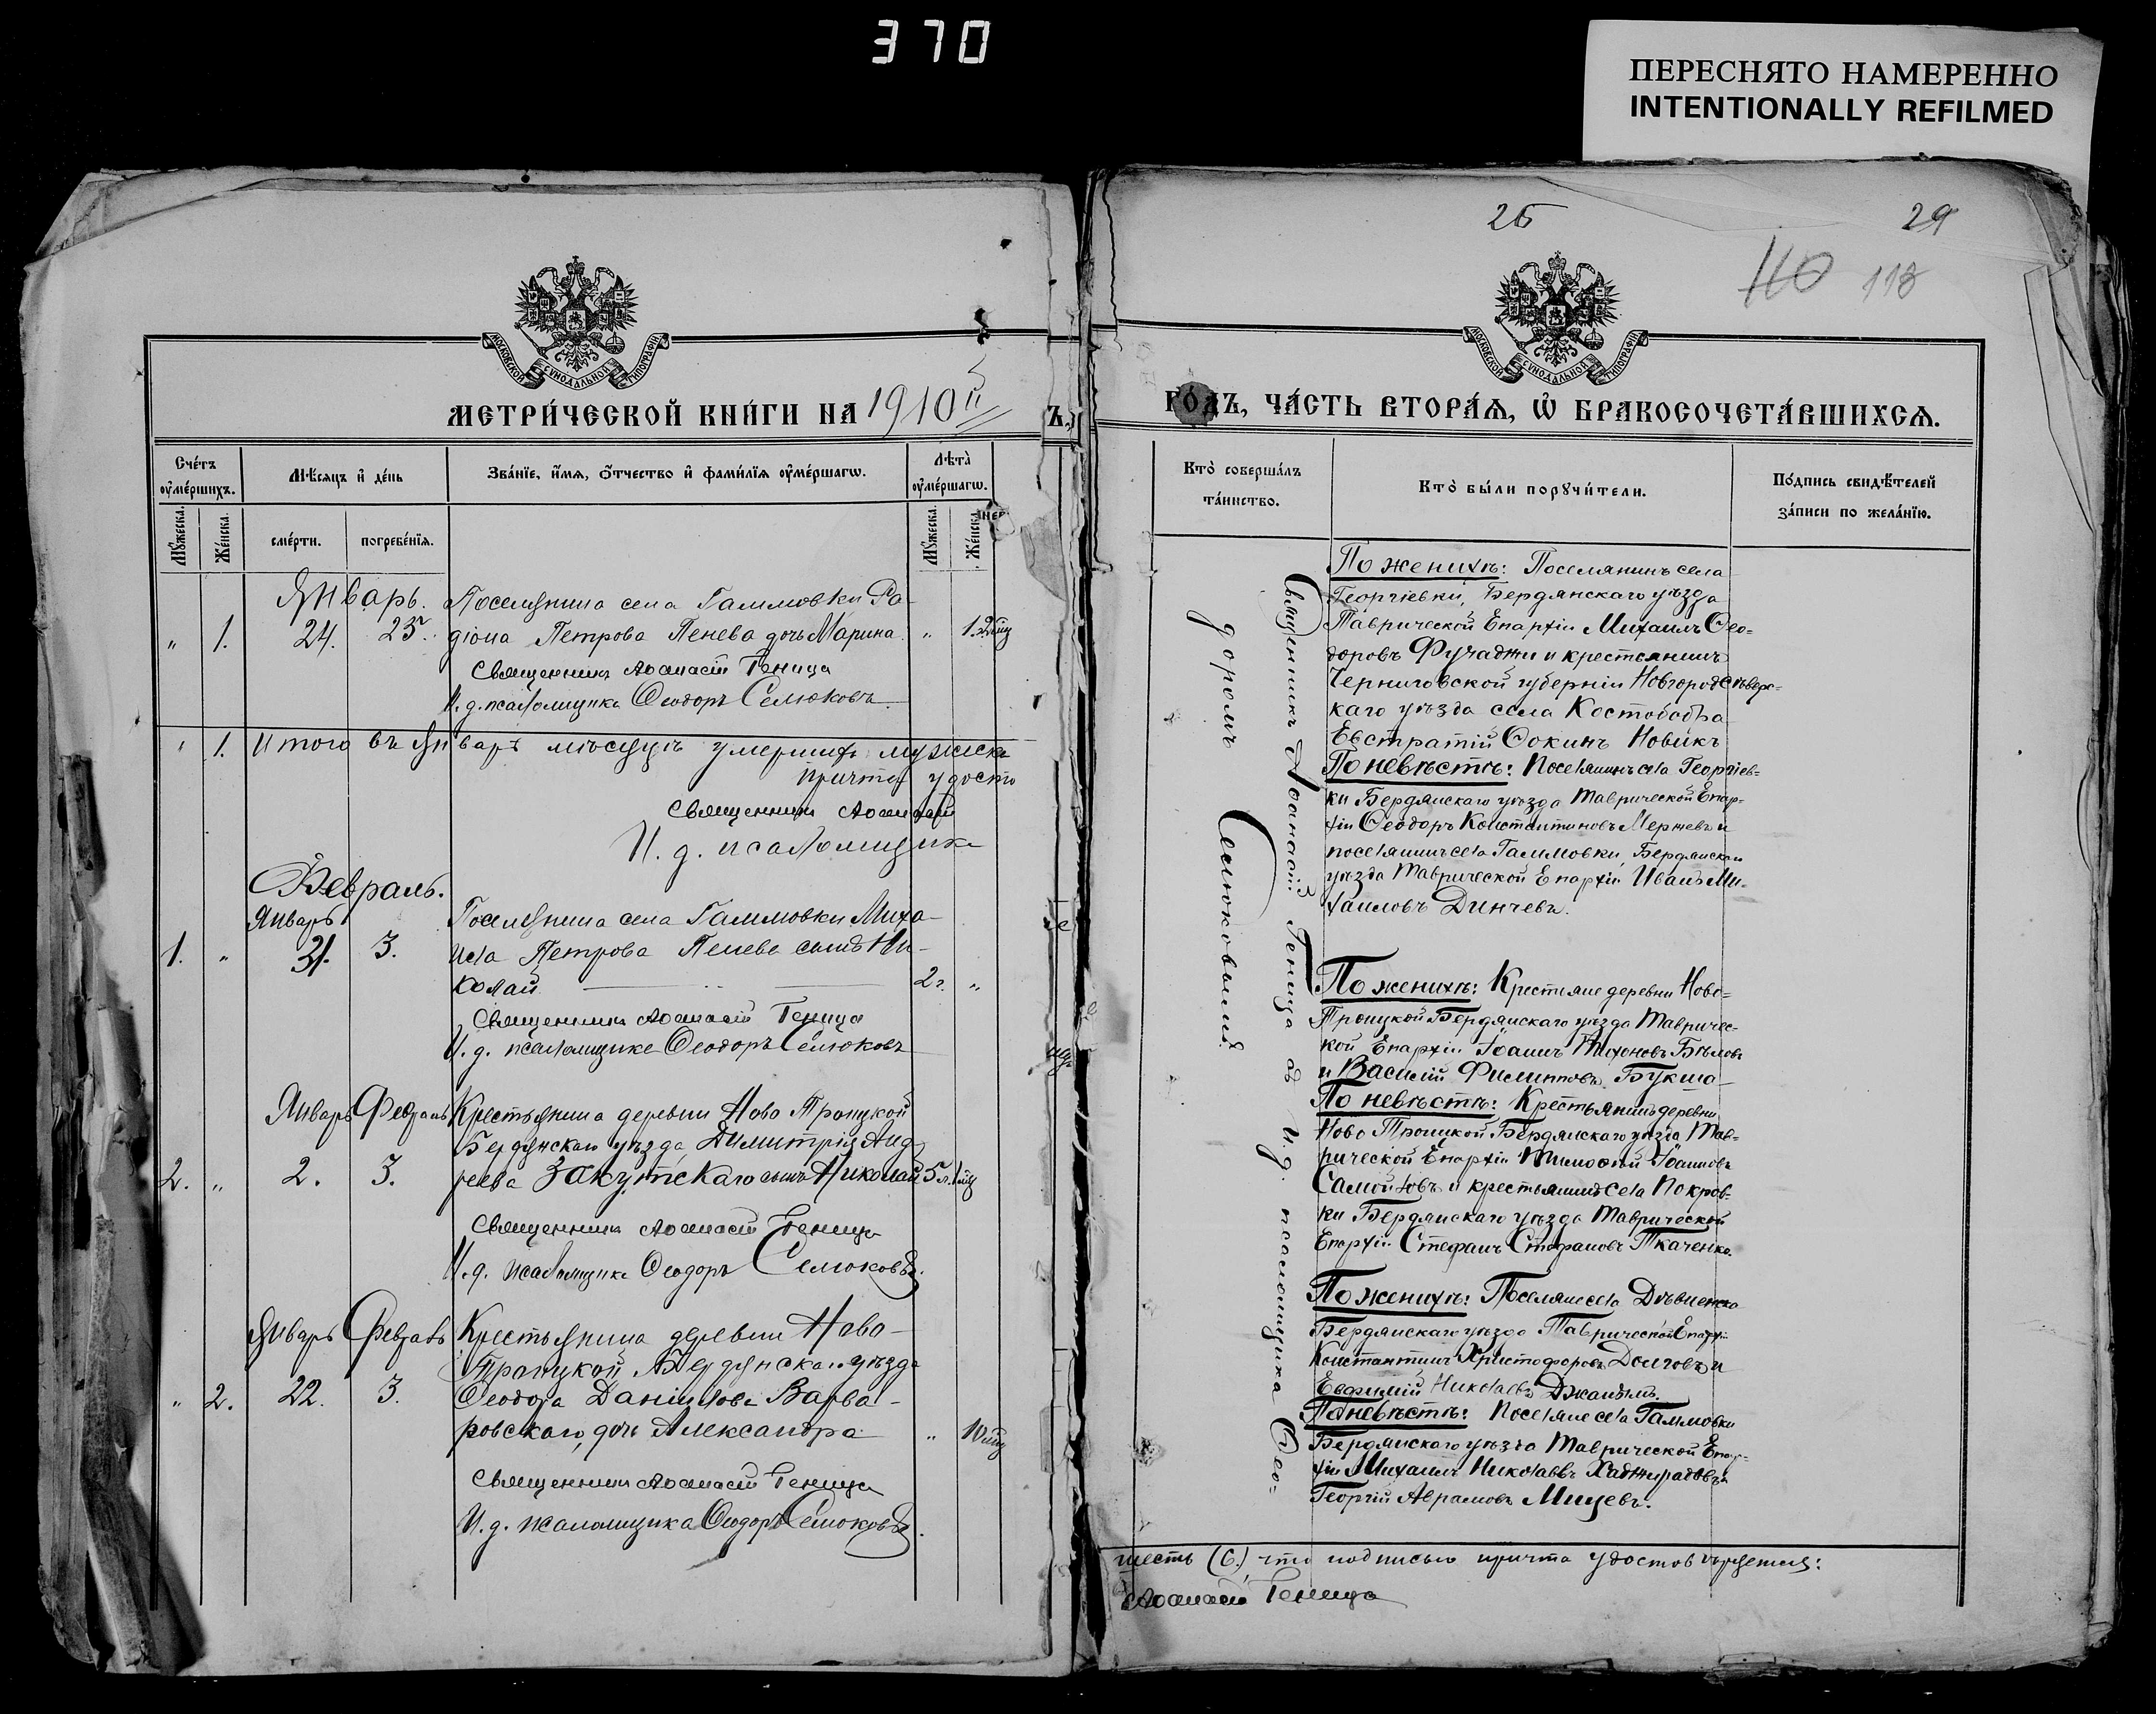 370
ПЕРЕСНЯТО НАМЕРЕННО
INTENTIONALLY REFILMED
МОСКОВСКОЙ СУНОДАЛЬНОЙ ТИПОГРАФІИ
МЕТРИ́ЧЕСКОЙ КНИ́ГИ НА 1910й
Сче́тъ ᲂу҆ме́ршихъ.
Мѣ́сяцъ и҆ де́нь
Зва́нїе, и҆́мѧ, ѻ҆́тчество и҆ фами́лїѧ ᲂу҆ме́ршагѡ.
Лѣта̀ ᲂу҆ме́ршагѡ.
Мꙋ́жеска.
Же́нска.
сме́рти.
погребе́нїѧ.
Мꙋ́жеска.
Же́нска.
Январь. Поселянина села Гаммовки Ро-
" 1. 24. 25. діона Петрова Пенева дочь Марина. "
Священникъ Аѳанасій Геница
И. д. псаломщика Ѳеодоръ Селюковъ
" 1. Итого въ Январѣ мѣсяцѣ умершихъ мужска
причта удосто
Священникъ Аѳанасій
И. д. псаломщика
Февраль.
Январь Поселянина села Гаммовки Миха-
1. " 31. 3. ила Петрова Пенева сынъ Ни-
колай 2 г. "
Священникъ Аѳанасій Геница
И. д. псаломщика Ѳеодоръ Селюковъ
Январь Февраль Крестьянина деревни Ново Троицкой
Бердянскаго уѣзда, Димитрія Анд-
2. " 2. 3. реева Закутскаго сынъ Николай 5 л.
Священникъ Аѳанасій Геница
И. д. псаломщика Ѳеодоръ Селюковъ.
Январь Февраль Крестьянина деревни Ново-
Троицкой Бердянскаго уѣзда
" 2. 22. 3. Ѳеодора Данилова Варва-
ровскаго, дочь Александра "
Священникъ Аѳанасій Геница
И. д. псаломщика Ѳеодоръ Селюковъ.
26
29
110 118
МОСКОВСКОЙ СУНОДАЛЬНОЙ ТИПОГРАФІИ
ГО́ДЪ, ЧА́СТЬ ВТОРА́Ѧ, Ѡ҆ БРАКОСОЧЕТА́ВШИХСѦ.
Кто̀ соверша́лъ та́инство.
Кто̀ бы́ли порꙋчи́тели.
По́дпись свидѣ́телей за́писи по жела́нїю.
Священникъ Аѳанасій Геница съ и. д. псаломщика Ѳео-
доромъ Селюковымъ.
По женихѣ: Поселянинъ села
Георгіевки, Бердянскаго уѣзда
Таврической Епархіи Михаилъ Ѳео-
доровъ Фучаджи и крестьянинъ
Черниговской губерніи Новгородсѣверс-
каго уѣзда села Костобобра
Евстратій Ѳокинъ Новикъ
По невѣстѣ: Поселянинъ села Георгіев-
ки Бердянскаго уѣзда Таврической Епар-
хіи Ѳеодоръ Константиновъ Мержевъ и
поселянинъ села Гаммовки, Бердянскаго
уѣзда Таврической Епархіи Иванъ Ми-
хаиловъ Динчевъ.
По женихѣ: Крестьяне деревни Ново-
Троицкой Бердянскаго уѣзда Тавричес-
кой Епархіи Іоаннъ Тихоновъ Бѣловъ
и Василій Филипповъ Букша
По невѣстѣ: Крестьянинъ деревни
Ново Троицкой Бердянскаго уѣзда Тав-
рической Епархіи Тимоѳей Іоанновъ
Самойловъ и крестьянинъ села Покров-
ки Бердянскаго уѣзда Таврической
Епархіи Стефанъ Стефановъ Ткаченко.
По женихѣ: Поселяне села
Бердянскаго уѣзда Таврической Епархіи
Константинъ Христофоровъ Долговъ и
Евфимій Николаевъ
По невѣстѣ: Поселяне села Гаммовки
Бердянскаго уѣзда Таврической Епар-
хіи Михаилъ Николаевъ Хаджирадовъ и
Георгій Аврамовъ Мицевъ.
шесть (6.), что подписью причта удостовѣряется:
Аѳанасій Геница